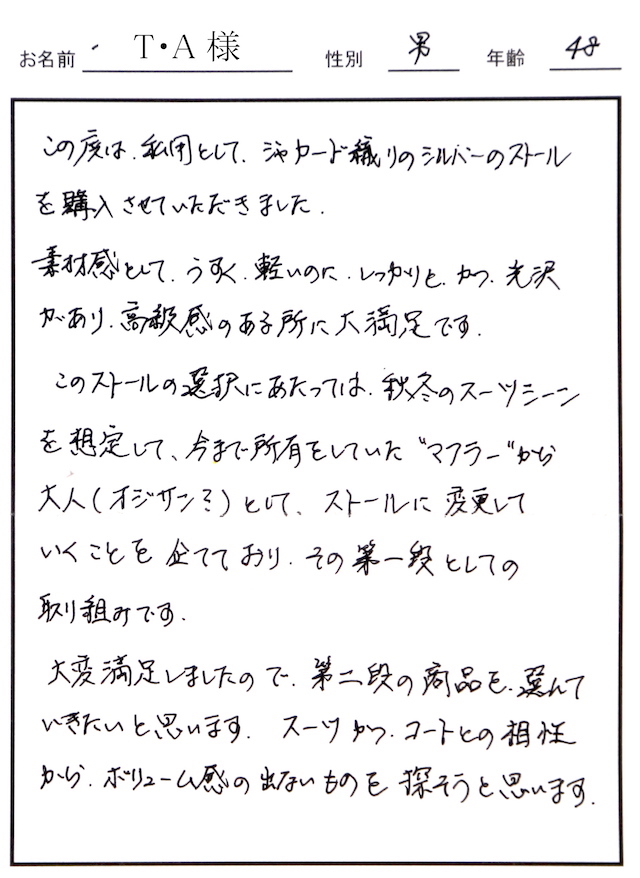 お名前 T・A 様 性別 男 年齢 48
この度は、私用として、ジャカード織りのシルバーのストール
を購入させていただきました.
素材感として、うすく、軽いのに、しっかりと、かつ、光沢
があり、高級感のある所に大満足です.
このストールの選択にあたっては、秋冬のスーツシーン
を想定して、今まで所有をしていた"マフラー"から
大人(オジサン?)として、ストールに変更して
いくことを企てており、その第一段としての
取り組みです.
大変満足しましたので、第二段の商品を、選んで
いきたいと思います. スーツかつ、コートとの相性
から、ボリューム感の出ないものを探そうと思います.